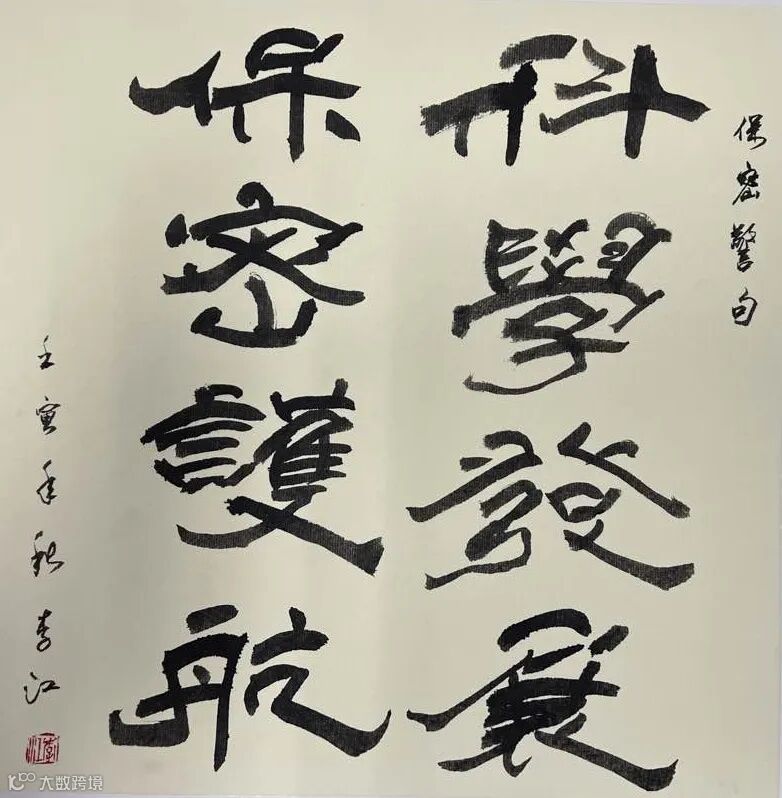 保密警句
科學發展
保密護航
壬寅年秋 李江
李江
大数跨境